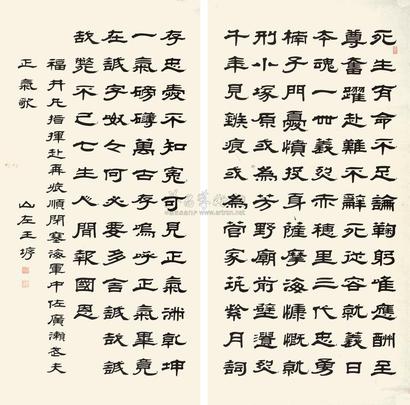 死生有命不足論鞠躬唯應酬至
尊奮躍赴難不辭死從容就義日
本魂一世義烈赤穗里三代忠勇
楠子門憂憤投身薩摩海慷慨就
刑小塚原或為芳野廟前壁遺烈
千年見鏃痕或為菅家筑紫月詞
存忠愛不知冤可見正氣乾坤
一氣磅礴萬古存嗚呼正氣畢竟
在誠字呶呶何必要多言誠哉誠
哉斃不已七生人間報國恩
福井丸指揮赴再旅順閉塞海軍中佐廣瀨武夫
正氣歌
山左王垿